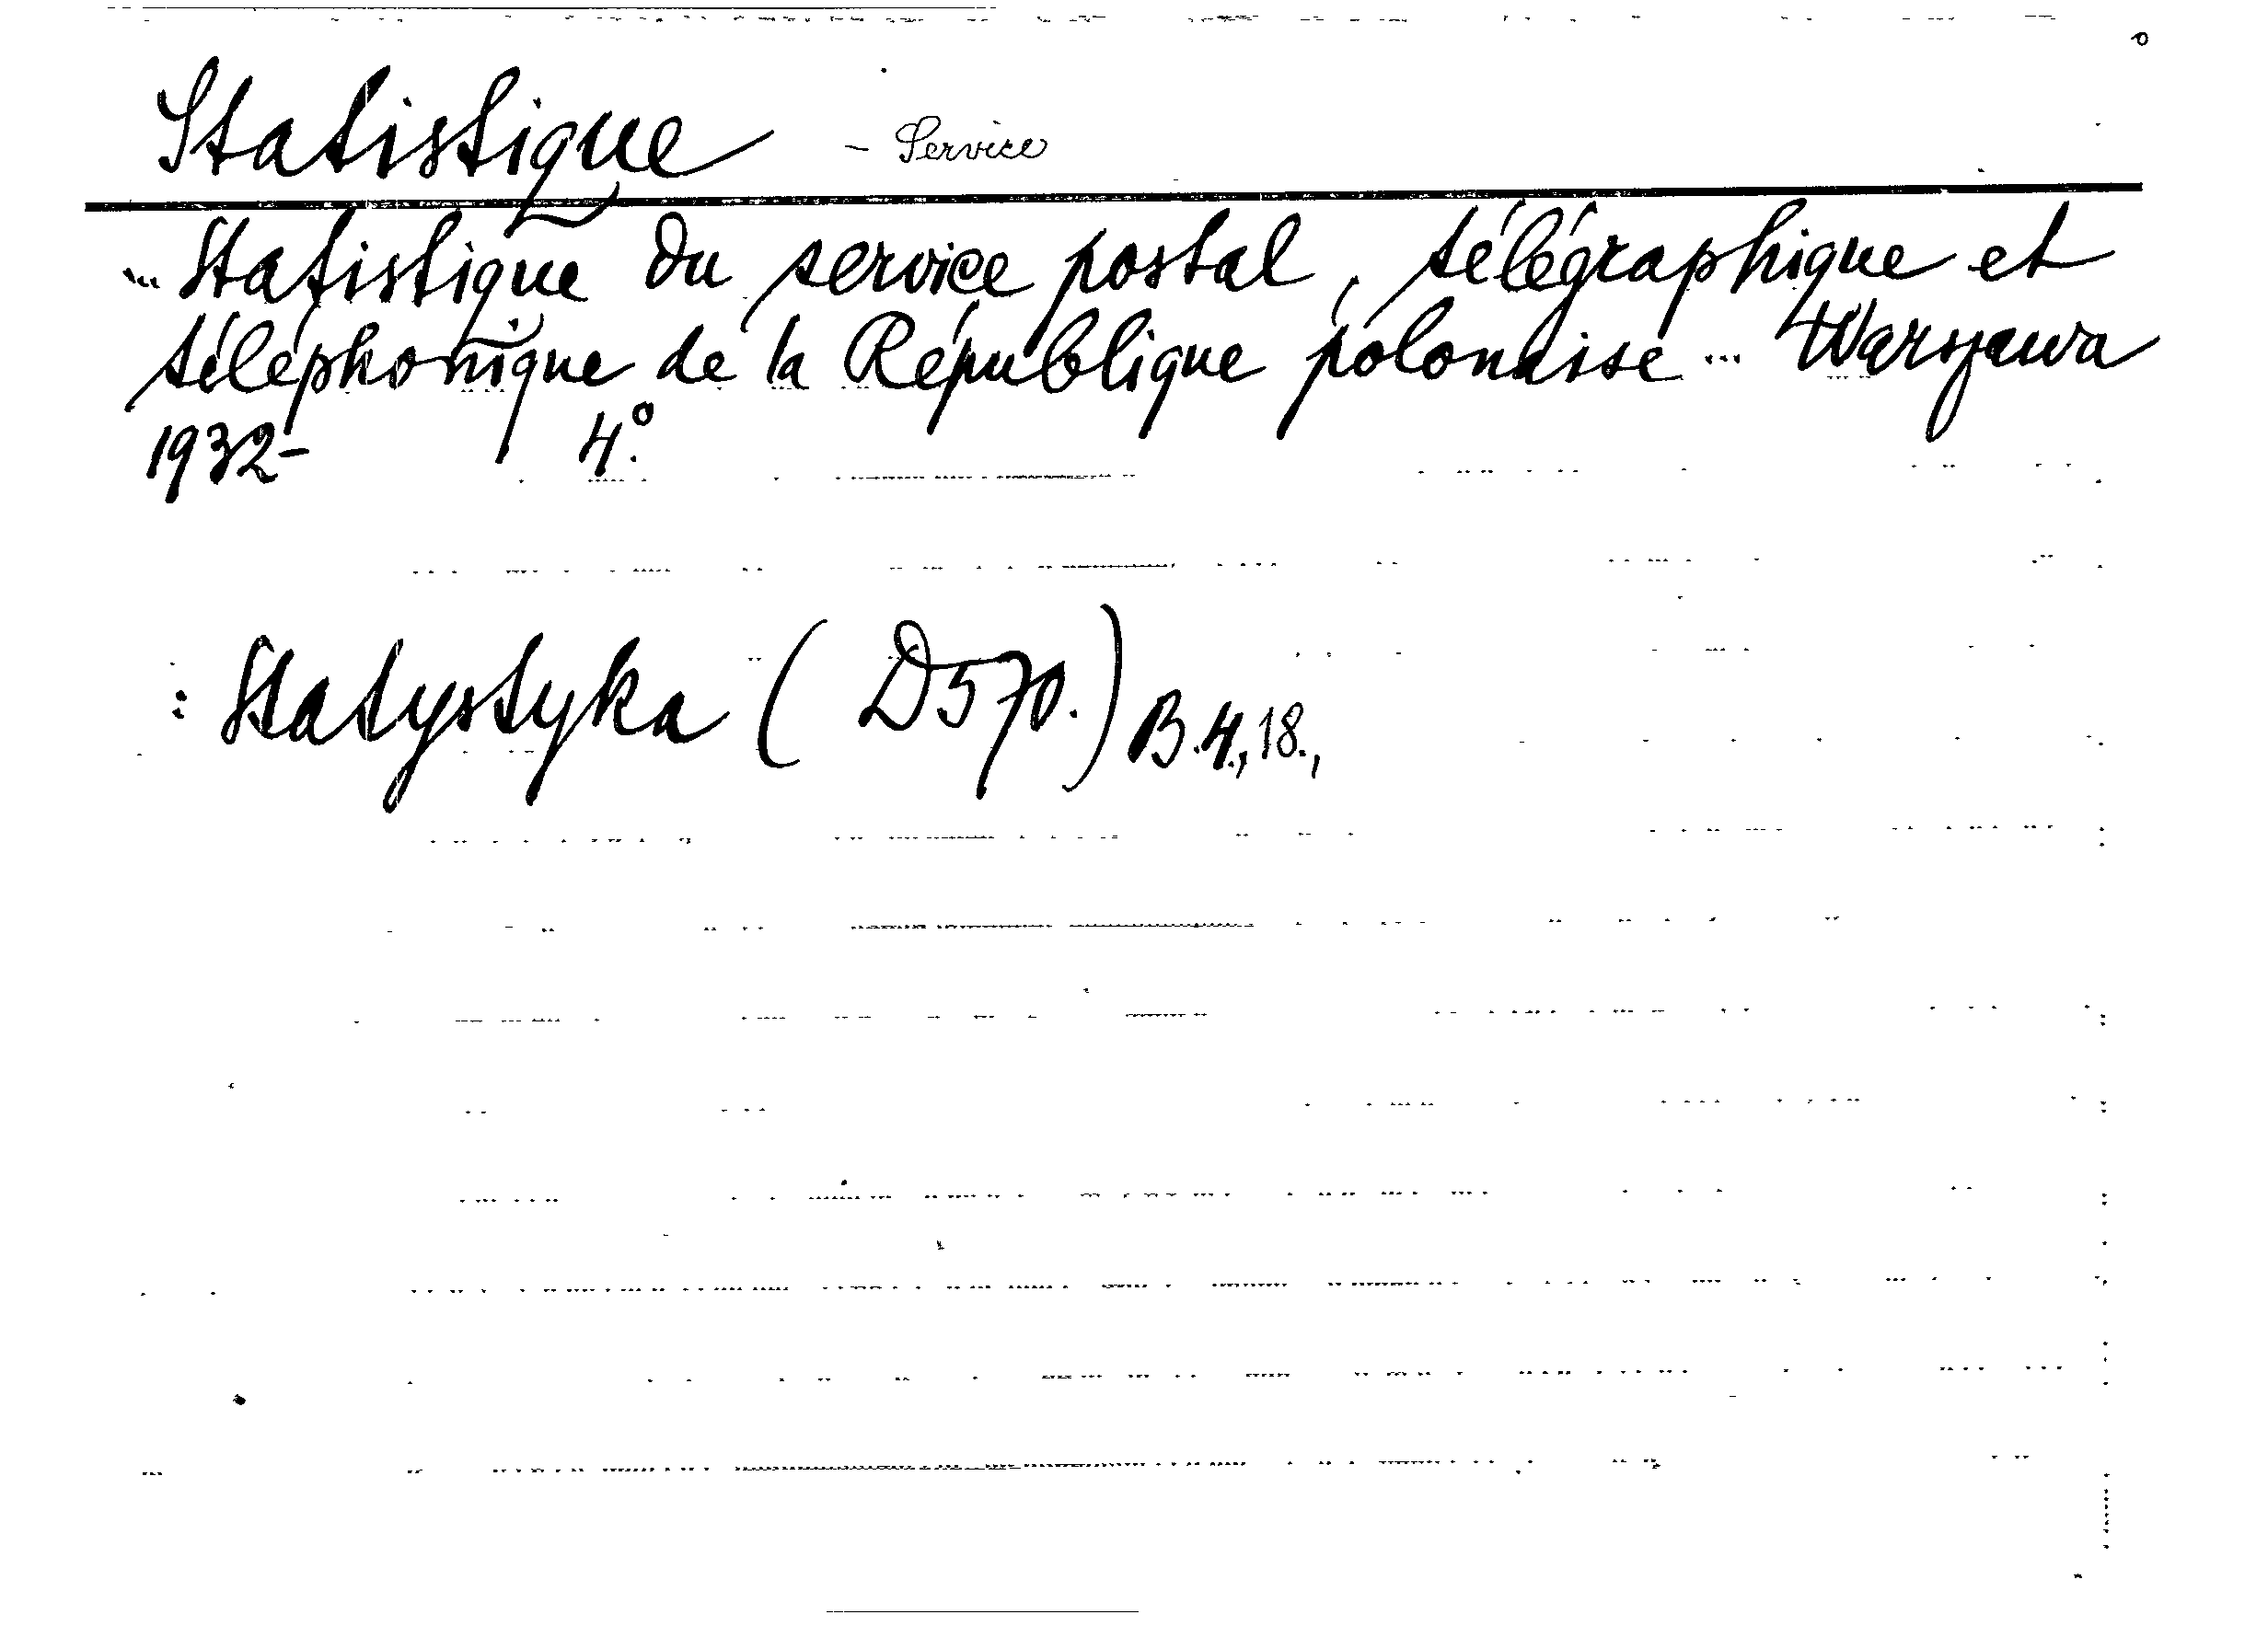 Statistique - Service
... Statistique du service postal, télégraphique et
téléphonique de la République polonaise ... Warszawa
1932- 4.º
: Statystyka ( D570. ) B.4., 18.,